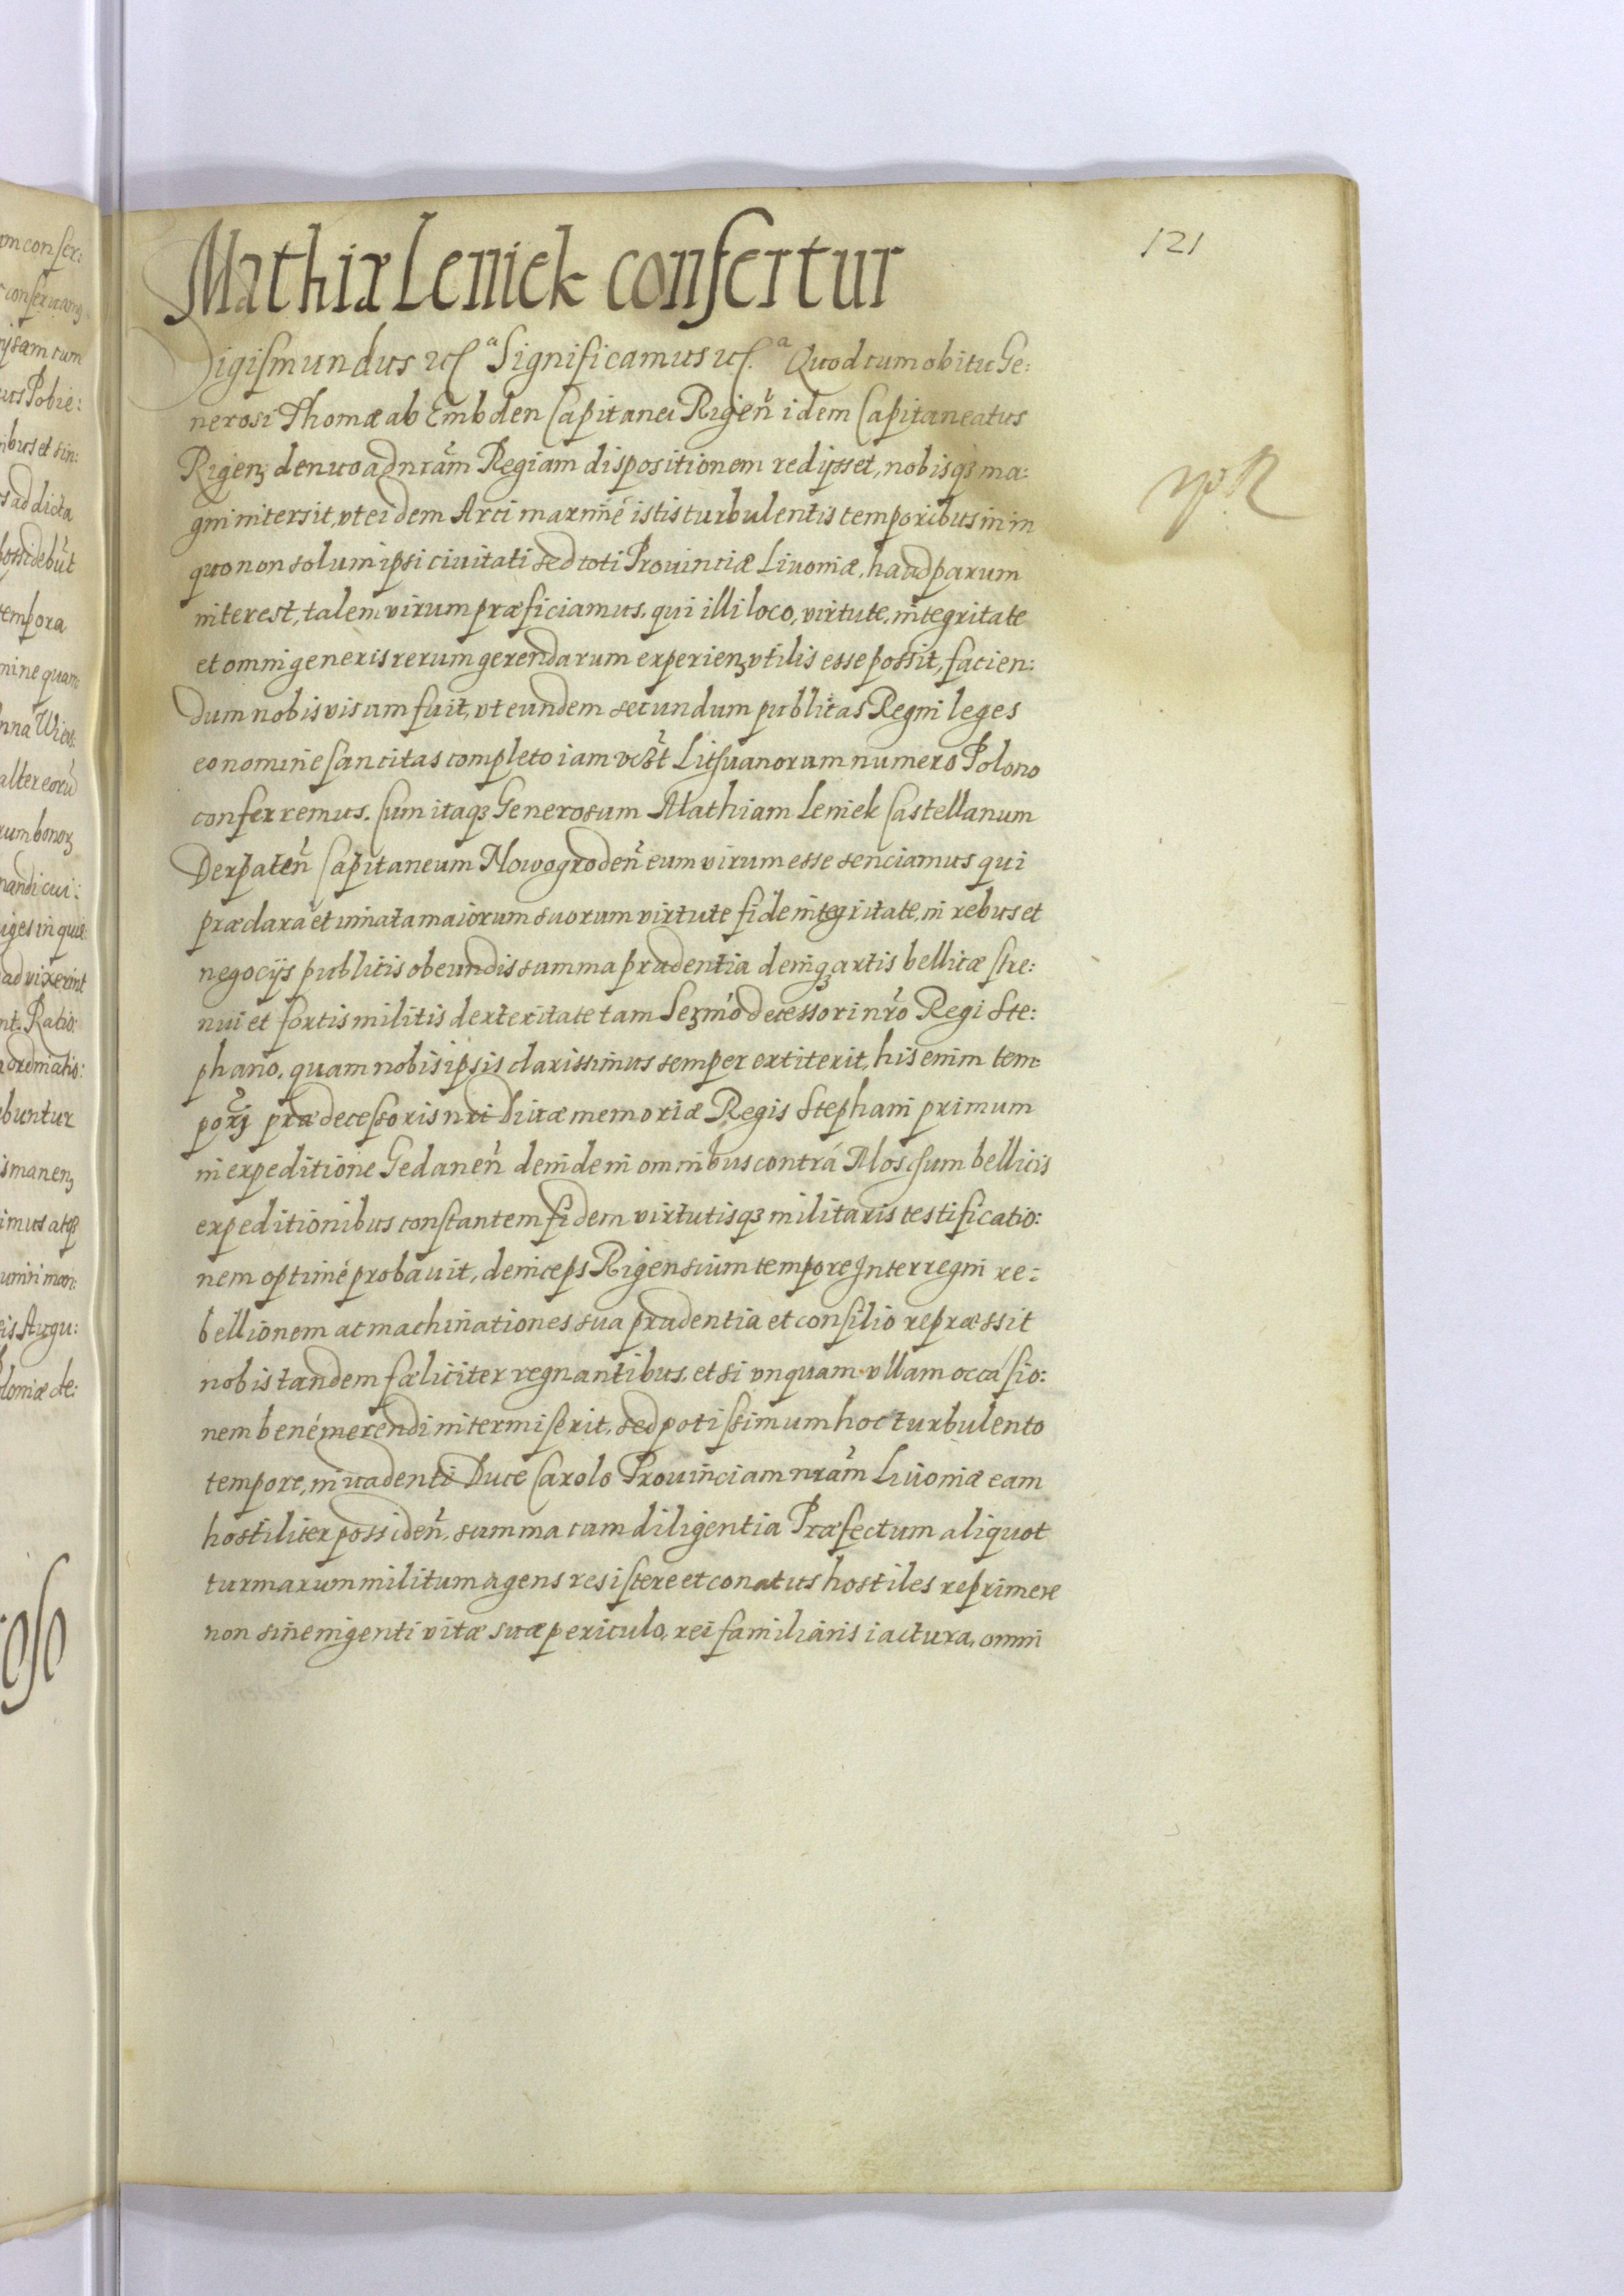 121
Mathiæ Leniek confertur
Sigismundus etc.ª Significamus etc.ª Quod cum obitu Ge:
nerosi Thomæ ab Embden Capitanei Rigeñ idem Capitaneatus
Rigenȝ denuo ad nrãm Regiam dispositionem redijsset, nobisqȝ ma:
gni intersit, vt eidem Arci maximè istis turbulentis temporibus in
quo non solum ipsi ciuitati sed toti Prouinciæ Liuoniæ, haud parum
interest, talem virum præficiamus, qui illi loco, virtute, integritate
et omni generis rerum gerendarum experienȝ vtilis esse possit, facien:
dum nobis visum fuit, vt eundem secundum publicas Regni leges
eo nomine sancitas completo iam Lithuanorum numero Polono
conferremus. Cum itaqȝ Generosum Mathiam Leniek Castellanum
Derpateñ Capitaneum Nowogrodeñ eum virum esse senciamus qui
præclara et innata maiorum suorum virtute fide integritate, in rebus et
negocijs publicis obeundis summa prudentia deniqȝ artis bellicæ stre:
nui et fortis militis dexteritate tam Serm̃o decessori nr̃o Regi Ste:
phano, quam nobis ipsis clarissimus semper extiterit, his enim tem:
poribȝ prædecessoris nri Diuæ memoriæ Regis Stephani primum
in expeditione Gedaneñ deinde in omnibus contrá Moschum bellicis
expeditionibus constantem fidem virtutisqȝ militaris testificatio:
nem optimé probauit, deinceps Rigensium tempore Interregni re:
bellionem ac machinationes sua prudentia et consilio repræssit
nobis tandem fæliciter regnantibus, et si vnquam vllam occásio:
nem bené merendi intermiserit, sed potissimum hoc turbulento
tempore, inuadenti Duce Carolo Prouinciam nrãm Liuoniæ eam
hostiliter possideñ, summa cum diligentia Præfectum aliquot
turmarum militum agens resistere et conatus hostiles reprimere
non sine ingenti vitæ suæ periculo, rei familiaris iactura, omni